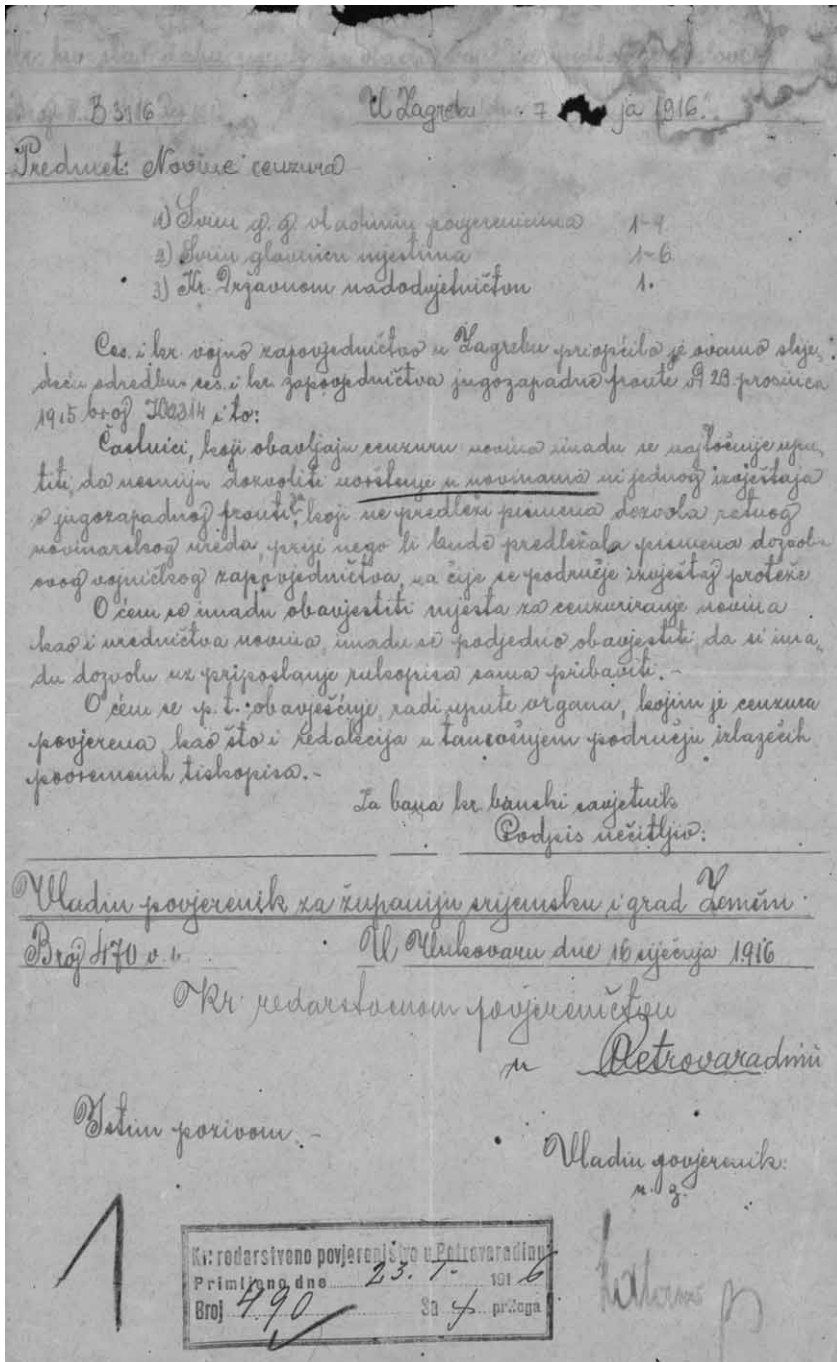 Kr. hrv. slav. dalm.
Broj B 3916
U Zagrebu dne 7 ja 1916.
Predmet: Novine cenzura
1) Svim g. g. vladinim povjerenicima 1-9
2) Svim glavnim mjestima 1-6
3) Kr. Državnom nadodvjetničtvu 1.
Ces. i kr. vojno zapovjedničtvo u Zagrebu priopćilo je ovamo slije-
deću odredbu ces. i kr. zapovjedničtva jugozapadne fronte 23 prosinca
1915 broj i to:
Častnici, koji obavljaju cenzuru novina imadu se najtočnije upu-
titi, da nesmiju dozvoliti uvrštenje u novinama ni jednog izvještaja
o jugozapadnoj fronti, koji ne predleži pismena dozvola ratnog
novinarskog ureda, prije nego li bude predležala pismena dozvola
ovog vojničkog zapovjedničtva, na čije se područje izvještaj proteže
O ćem se imadu obavjestiti mjesta za cenzuriranje novina
kao i uredničtva novina, imadu se podjedno obavjestiti, da si ima-
du dozvolu uz priposlanje rukopisa sama pribaviti. -
O ćem se p. t. obavješćuje, radi upute organa, kojim je cenzura
povjerena, kao što i redakcija u tamošnjem području izlazećih
povremenih tiskopisa. -
Za bana kr. banski savjetnik
Podpis nečitljiv:
Vladin povjerenik za županiju srijemsku i grad Zemun.
Broj 470
U Vukovaru dne 16 siječnja 1916
Kr. redarstvenom povjereničtvu
u Petrovaradinu
Istim pozivom. -
Vladin povjerenik:
u. z.
1
Kr. redarstveno povjereništvo u Petrovaradinu
Primljeno dne 23. I. 1916
Broj 490 Sa priloga